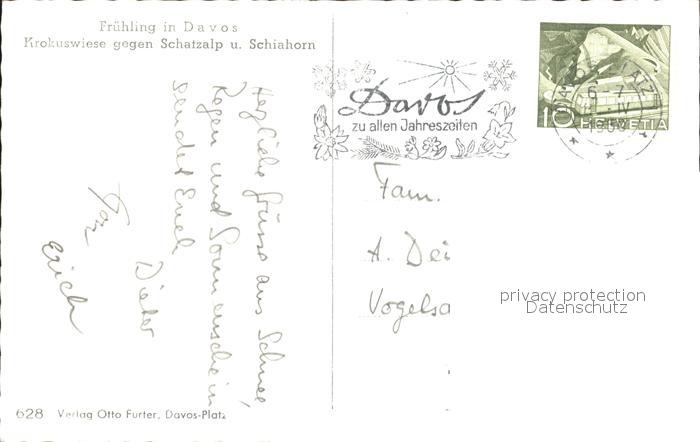 Frühling in Davos
Krokuswiese gegen Schatzalp u. Schiahorn
Herzliche Grüsse aus Schnee
Regen und Sonnenschein
sendet Euch
Dieter
Erich
Davos
zu allen Jahreszeiten
10
HELVETIA
Fam.
A. Dei
Vogelsa
privacy protection
Datenschutz
628 Verlag Otto Furter, Davos-Platz